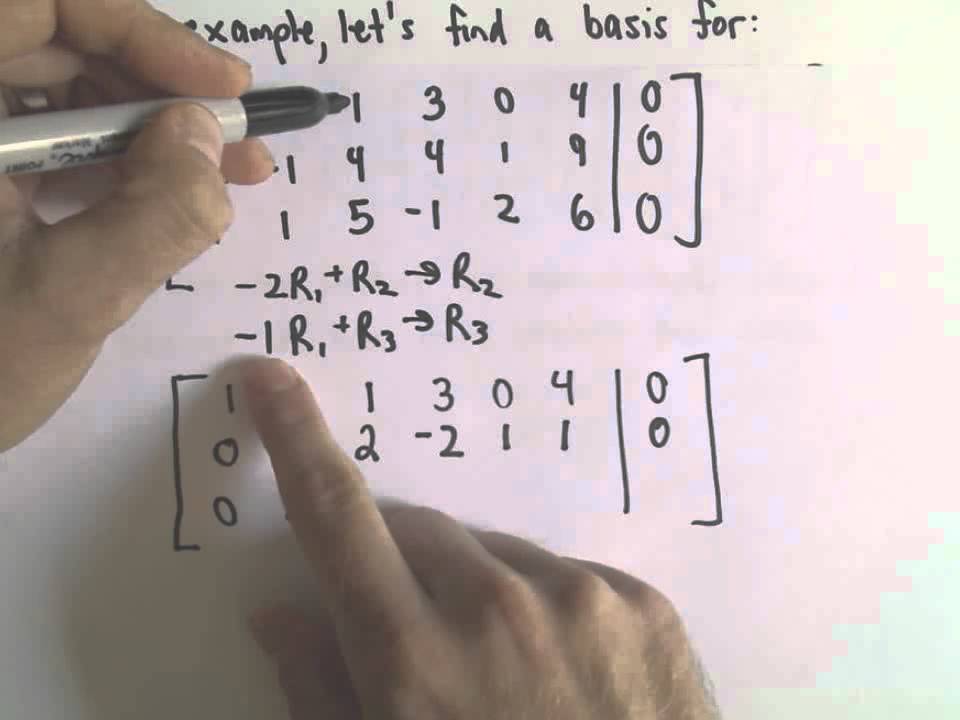 example, let's find a basis for:
1 3 0 4 | 0
-1 4 4 1 9 | 0
1 5 -1 2 6 | 0
-2R₁ + R₂ → R₂
-1 R₁ + R₃ → R₃
1 1 3 0 4 | 0
0 2 -2 1 1 | 0
0